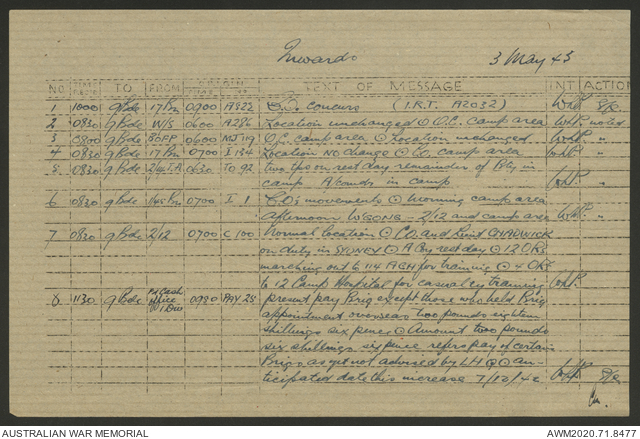 Inwards 3 May 43
NO. TO FROM TEXT OF MESSAGE INT ACTION
1 1000 9 Bde 17 Bn 0900 A522 C.O. concurs (I.R.T. A2032)
2 0830 9 Bde W/S 0600 A286 Location unchanged O.C. camp area noted
3 0800 9 Bde 0600 O.C. camp area Location unchanged "
4 0830 9 Bde 17 Bn 0700 I 134 Location NO change C.O. camp area "
5 0830 9 Bde 0630 TO 92 two tps on rest day remainder of Bty in
camp A comds in camp "
6 0830 9 Bde Bn 0700 I 1 C.O's movements morning camp area
afternoon 2/12 and camp area "
7 0830 9 Bde 2/12 0700 C 100 Normal location C.O. and Lieut CHADWICK
on duty in SYDNEY A Coy rest day 12 ORs
marching out to 114 AGH for training 4 ORs
to 12 Camp Hospital for casualty training
8 1130 9 Bde Cash office 0930 PAY 28 present pay Brig except those who held Brig
appointment overseas two pounds eighteen
shillings six pence Amount two pounds
six shillings six pence refers pay of certain
Brigs as yet not advised by LHQ an-
ticipated date this increase 7/12/42
AUSTRALIAN WAR MEMORIAL
AWM2020.71.8477